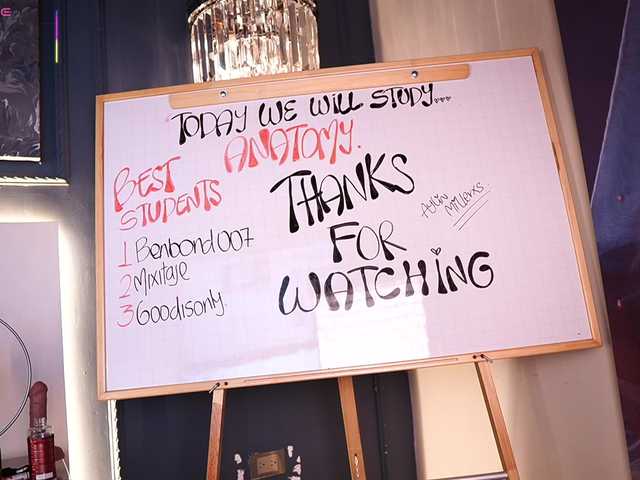 TODAY WE WILL STUDY...
ANATOMY.
BEST
STUDENTS
1 Benbond007
2 Mixitaje
3 Goodisonly.
THANKS
FOR
WATCHING